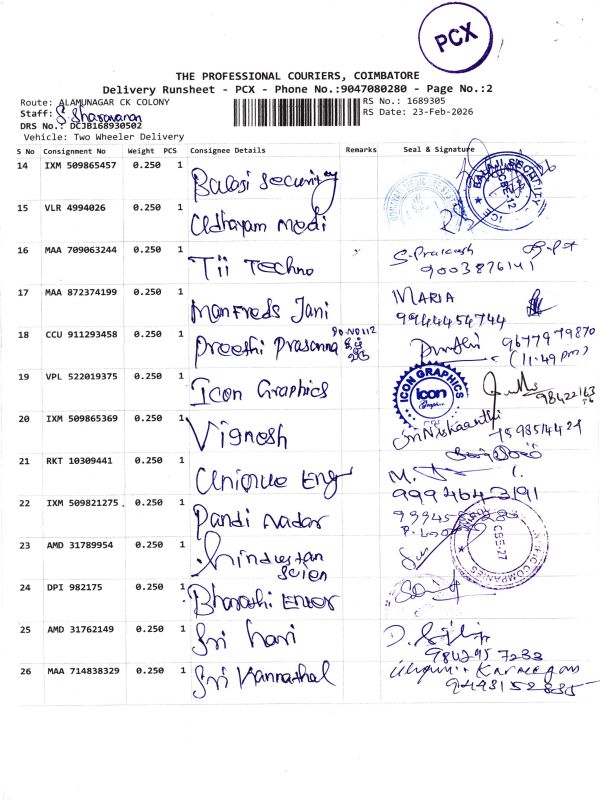 PCX
THE PROFESSIONAL COURIERS, COIMBATORE
Delivery Runsheet - PCX - Phone No.:9047080280 - Page No.:2
Route: ALAMUNAGAR CK COLONY
RS No.: 1689305
Staff: S. Sharavanan
RS Date: 23-Feb-2026
DRS No.: DCJB168930502
Vehicle: Two Wheeler Delivery
S No Consignment No Weight PCS Consignee Details Remarks Seal & Signature
14 IXM 509865457 0.250 1 Balaji Security BALAJI SECURITY CBE-12
15 VLR 4994026 0.250 1 Udhayam Medi
16 MAA 709063244 0.250 1 Tii Techno S. Prakash 9003876141
17 MAA 872374199 0.250 1 Manfreds Jani MARIA 9944454744
18 CCU 911293458 0.250 1 Preethi Prasanna DO.NO 112 9677979870 (11:49 pm)
19 VPL 522019375 0.250 1 Icon Graphics ICON GRAPHICS icon Graphics
20 IXM 509865369 0.250 1 Vignesh
21 RKT 10309441 0.250 1 Unique Eng M. 9994643191
22 IXM 509821275 0.250 1 Pandi Nadar
23 AMD 31789954 0.250 1 Hindustan Scien CBE-27
24 DPI 982175 0.250 1 Bharathi Enter
25 AMD 31762149 0.250 1 Sri hari D. 9842957233
26 MAA 714838329 0.250 1 Sri Kannathal